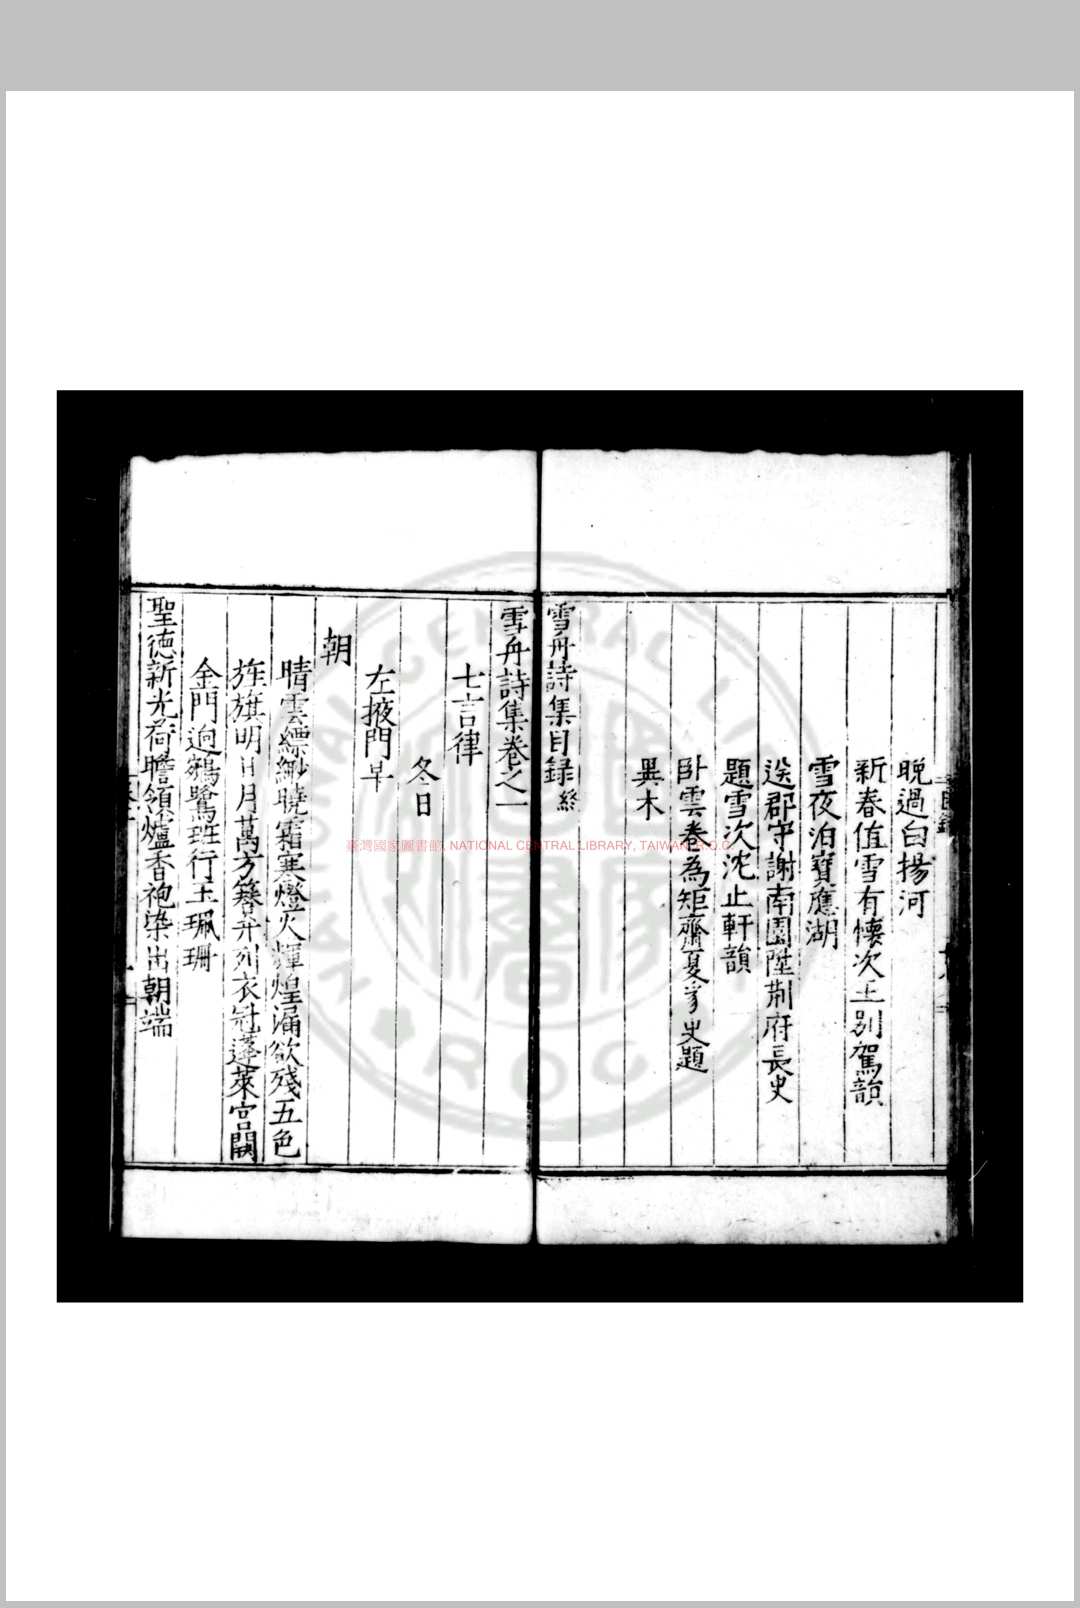 晚過白揚河
新春值雪有懷次王別駕韻
雪夜泊寶應湖
送郡守謝南園陞荊府長史
題雪次沈止軒韻
卧雲卷為矩齋夏豸史題
異木
雪舟詩集目録終
雪舟詩集卷之一
七言律
冬日
左掖門早
朝
晴雲縹緲曉霜寒燈火輝煌漏欲殘五色
旌旗明日月萬方簪弁列衣冠蓬萊宮闕
金門迥鵷鷺班行玉珮珊
聖徳新光荷瞻領爐香袍染出朝端
臺灣國家圖書館, NATIONAL CENTRAL LIBRARY, TAIWAN, R.O.C.